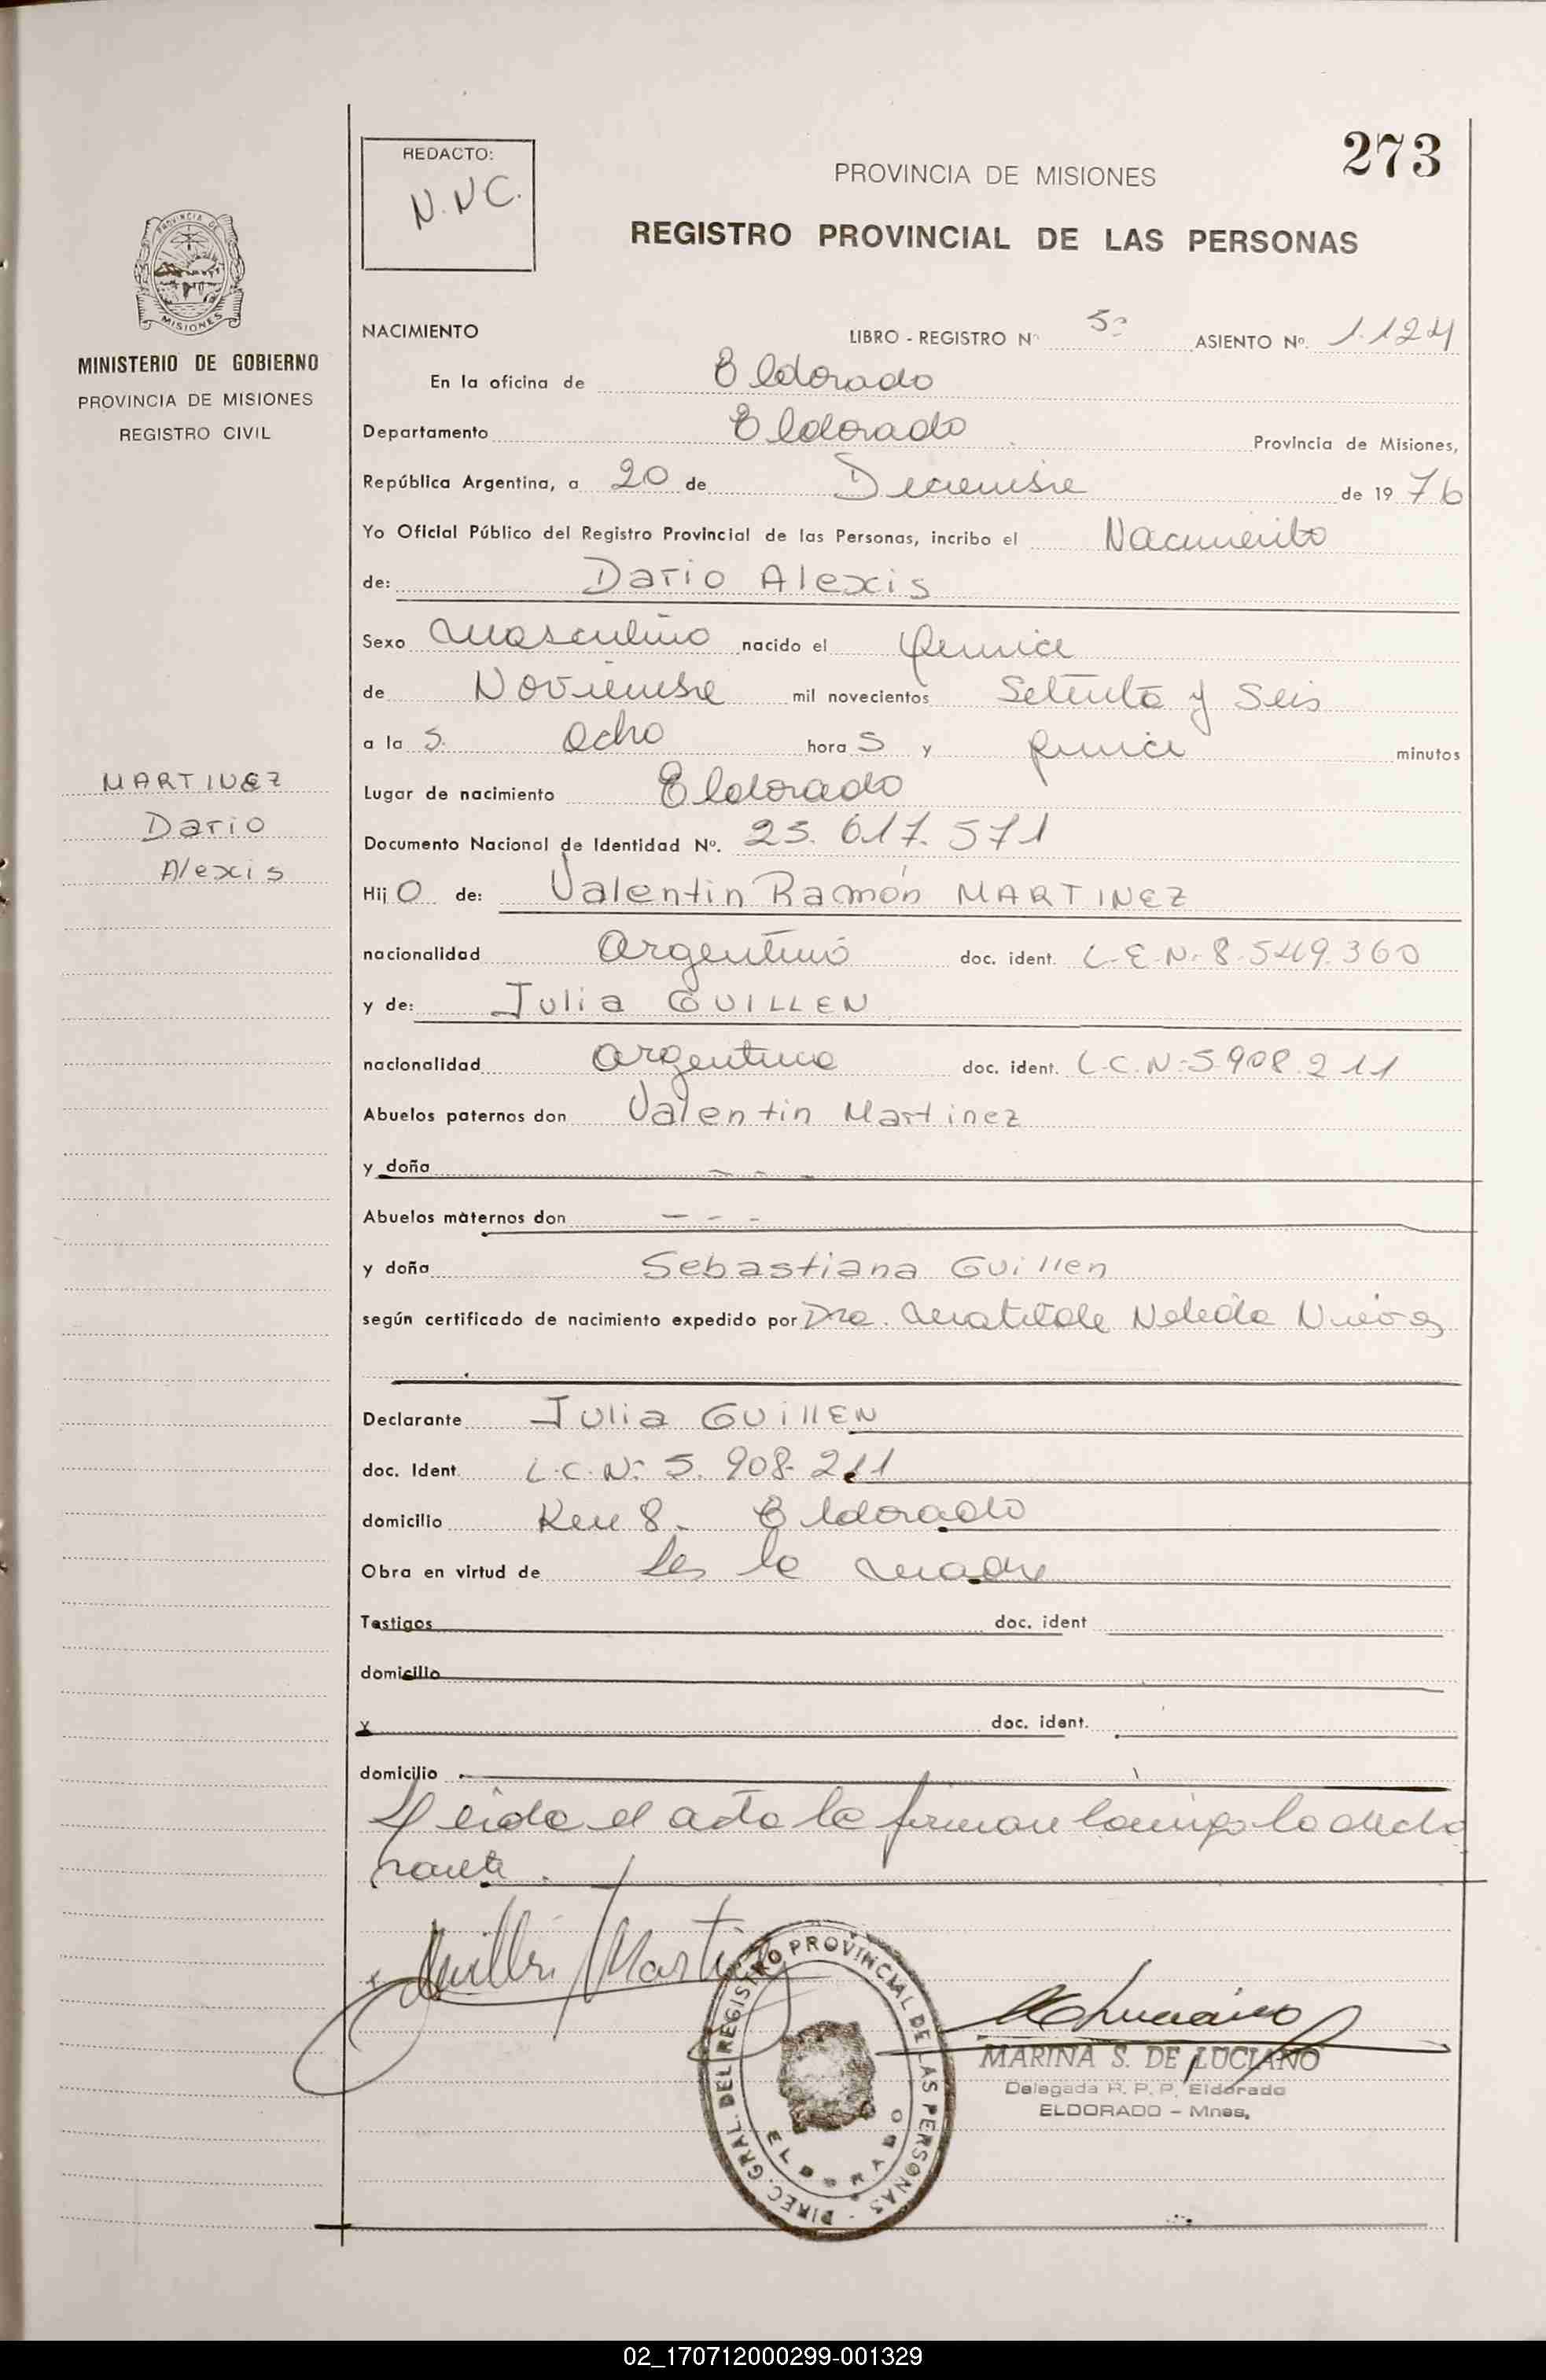 273
REDACTO:
N.NC.
PROVINCIA DE MISIONES
REGISTRO PROVINCIAL DE LAS PERSONAS
PROVINCIA DE
MISIONES
MINISTERIO DE GOBIERNO
PROVINCIA DE MISIONES
REGISTRO CIVIL
MARTINEZ
Dario
Alexis
NACIMIENTO LIBRO - REGISTRO Nº 5º ASIENTO Nº. 1.124
En la oficina de Eldorado
Departamento Eldorado Provincia de Misiones,
República Argentina, a 20 de Diciembre de 1976
Yo Oficial Público del Registro Provincial de las Personas, incribo el Nacimiento
de: Dario Alexis
Sexo Masculino nacido el Quince
de Noviembre mil novecientos Setenta y Seis
a la s. Ocho hora s y quince minutos
Lugar de nacimiento Eldorado
Documento Nacional de Identidad Nº. 25.617.571
Hij o de: Valentin Ramón MARTINEZ
nacionalidad Argentino doc. ident. L.E.Nº 8.549.360
y de: Julia GUILLEN
nacionalidad Argentina doc. ident. L.C.Nº 5.908.211
Abuelos paternos don Valentin Martinez
y doña - - -
Abuelos maternos don - - -
y doña Sebastiana Guillen
según certificado de nacimiento expedido por Dra. Matilde
Declarante Julia GUillEN
doc. Ident. L.C.Nº 5.908.211
domicilio Km 8. Eldorado
Obra en virtud de Ser la madre
Testigos doc. ident
domicilio
y doc. ident.
domicilio
Leida el acta la firman conmigo la decla
rante.
Guillen Martinez
DIREC. GRAL. DEL REGISTRO PROVINCIAL DE LAS PERSONAS
ELDORADO
MARINA S. DE LUCIANO
Delegada R. P. P. Eldorado
ELDORADO - Mnes.
02_170712000299-001329